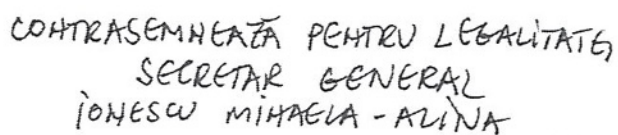 CONTRASEMNEAZĂ PENTRU LEGALITATE,
SECRETAR GENERAL
IONESCU MIHAELA-ALINA